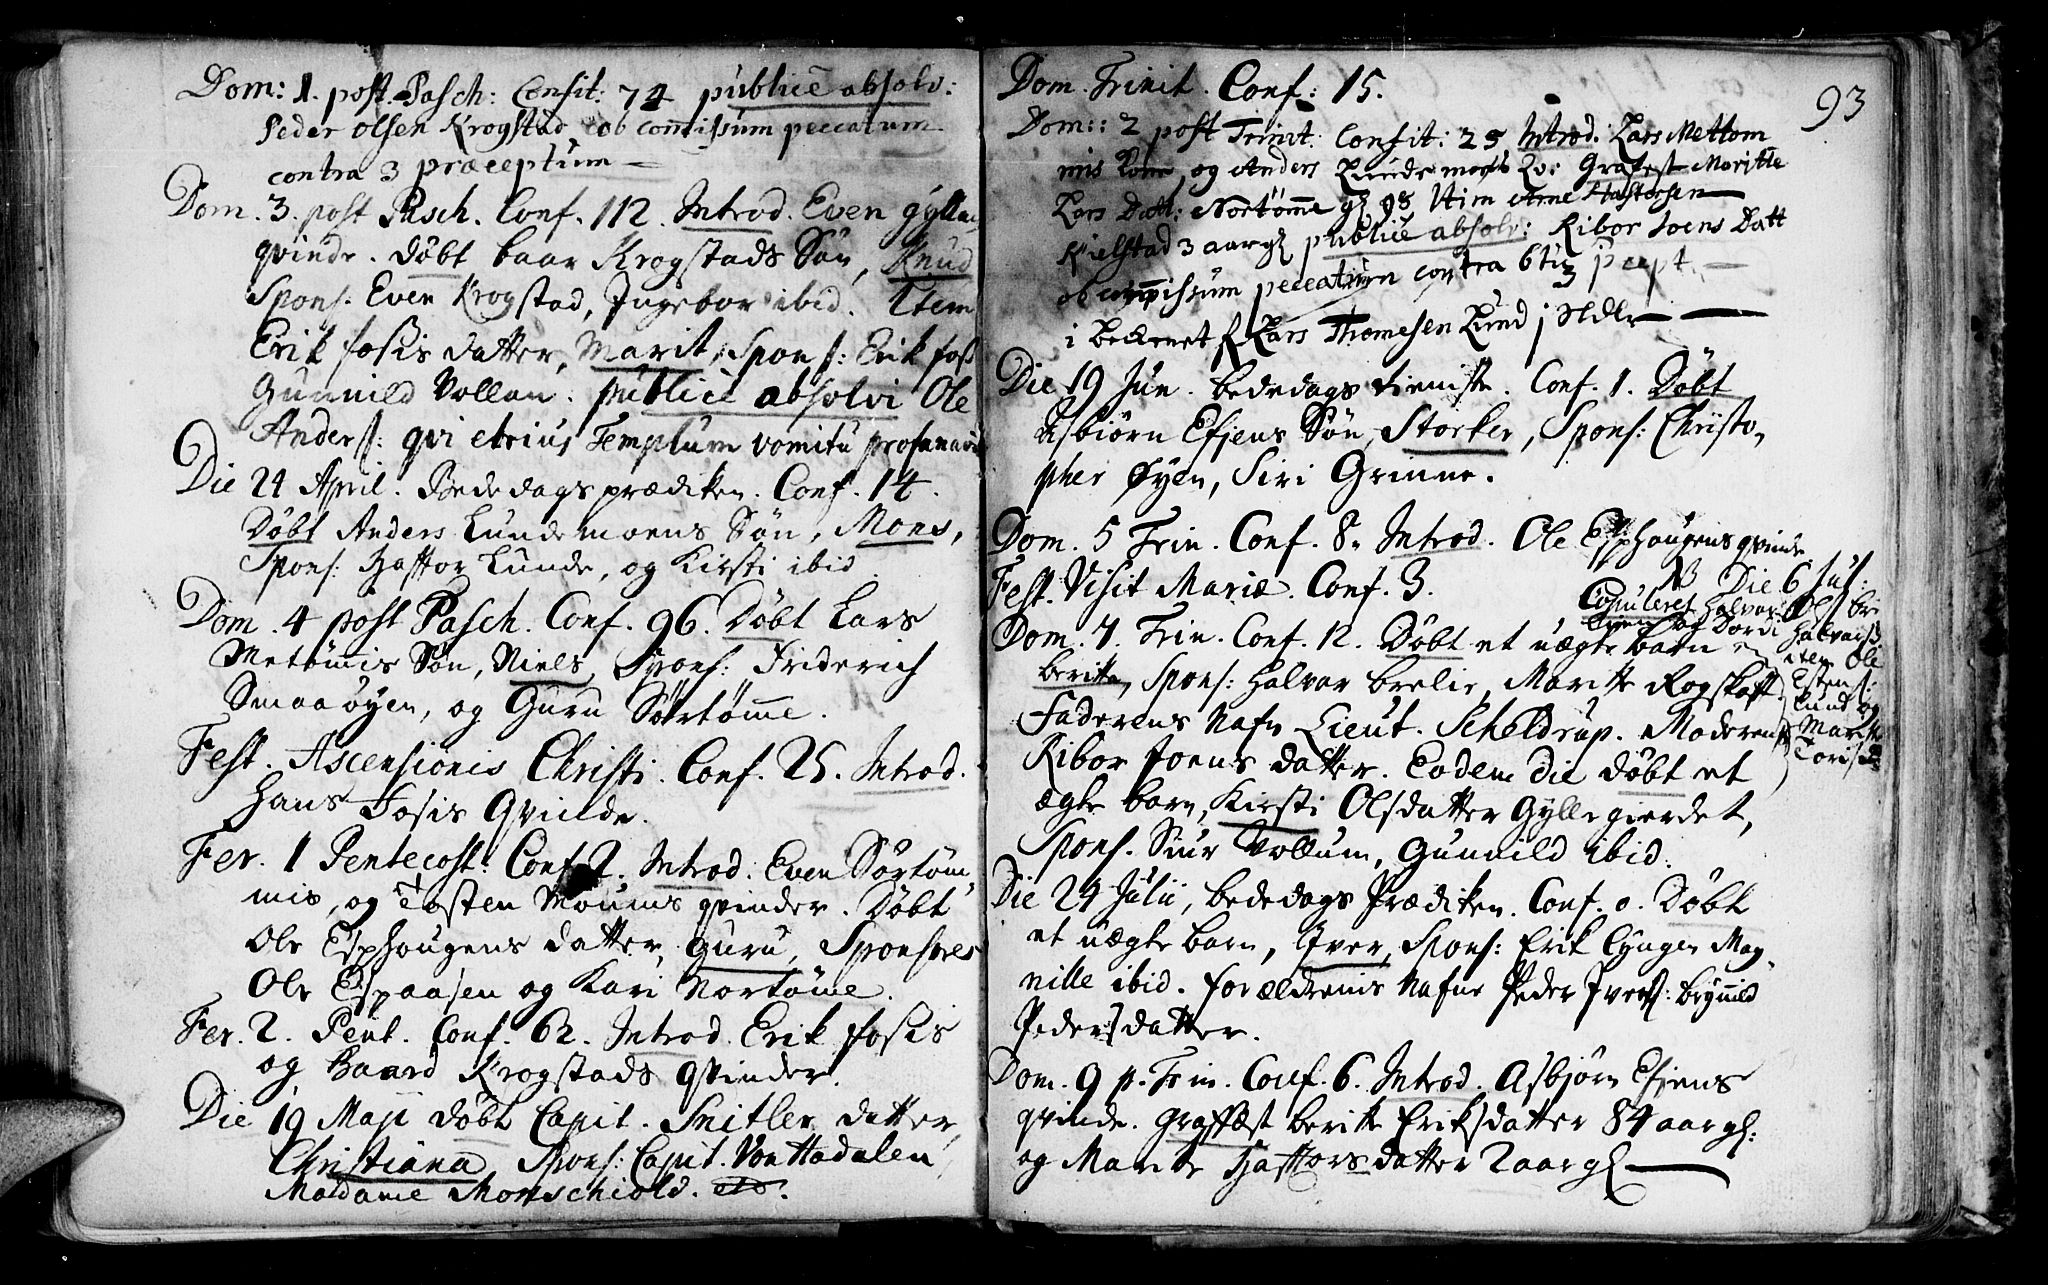 Dom: 1. post. Pasch: Consit: 74 publice absolv:
Peder Olsen Krogstad ob comissum peccatum
contra 3 præceptum
Dom. 3. post Pasch. Conf. 112. Introd. Even Gylla
qvinde. Døbt baar Krogstads Søn, Knud
Spons. Even Krogstad, Ingebor ibid. Item
Erik fosis datter, Marit, Spons: Erik fos
Gunnild Vollan. publice absolvi Ole
Anders: qvi ebrius Templum vomitu profanavit
Die 24 April. Bededags prædiken. Conf. 14.
Døbt Anders Lundemoens Søn, Mons,
Spons: Haftor Lunde, og Kirsti ibid
Dom. 4 post Pasch. Conf. 96. Døbt Lars
Metömmis Søn, Niels, Spons: Friderich
Smaaøyen, og Guru Sørtømme.
Fest. Ascensionis Christi. Conf. 25. Introd.
Hans Fosis Qvinde.
Fer. 1 Pentecost: Conf. 2. Introd: Even Sørtøm
mis, og Tosten Moums qvinder. Døbt
Ole Esphougens datter, Guru, Sponsores
Ole Espaasen og Kari Nortømme.
Fer. 2. Pent. Conf. 62. Introd. Erik fosis
og Baard Krogstads qvinder.
Die 19 Maji døbt Capit. Snitler datter,
Christiana, Spons: Capit. Von Hadalen
Madame Monschiold.
93
Dom. Trinit. Conf: 15.
Dom:: 2 post Trinit: Consit: 25 Introd: Lars Mettom
mis Kone, og Anders Lundemoens Qv: Grafest Maritte
Lars Datt: Nortømme gl 98 Item Arne Haftorsen
Kielstad 3 aar gl publice absolv: Ribor Joens Datt
ob comissum peccatum contra 6tum præcept.
i Lars Thomesen Lund
Die 19 Jun. bededags tieniste. Conf. 1. Døbt
Asbiörn Efjens Søn, Storker, Spons: Christo-
pher Øyen, Siri Grinne.
Dom. 5 Trin. Conf. 8. Introd. Ole Esphougens qvinde
Fest. Visit Mariæ. Conf. 3.
NB Die 6 Jul:
Copuleret Halvar Ols: bre
lien og Dordi Halvars:
item Ole
Estens:
Lund og
Maritte
Toris d:
Dom. 7. Trin. Conf. 12. Døbt et uægte barn
beritte, Spons: Halvar brelie, Maritte Rogskaft
Faderens Nafn Lieut. Scheldrup. Moderens
Ribor Joens datter. Eodem die døbt et
ægte barn, Kirsti Olsdatter Gyllegierdet,
Spons. Siur Vollum, Gunnild ibid.
Die 24 Julii, bededags Prædiken. Conf. 0. Døbt
et uægte barn, Iver, Spons: Erik Lyngen Mag-
nille ibid. forældrenis Nafne Peder Ivers: brynild
Pedersdatter.
Dom. 9 p. Trin. Conf. 6. Introd. Asbjørn Efjens
qvinde. Graffæst beritte Eriksdatter 84 aar gl:
og Marite Haftorsdatter 2 aar gl